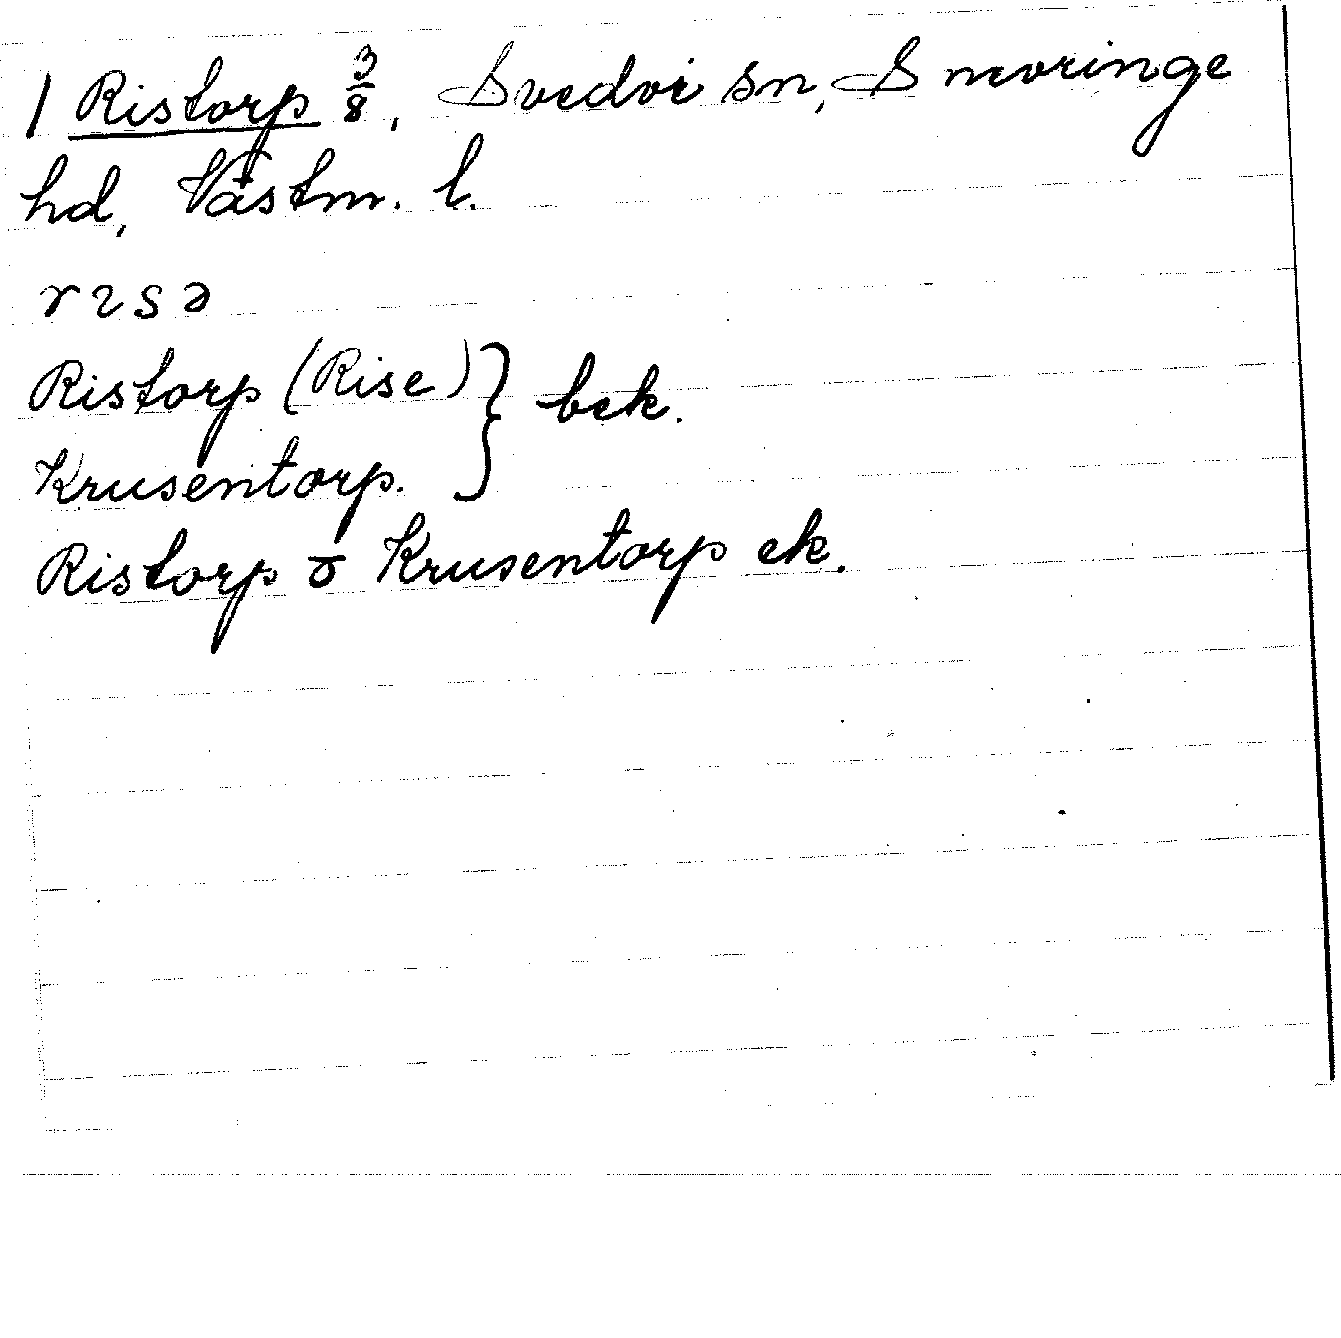 1 Ristorp 3/8, Svedvi sn, Snevringe
hd, Västm. l.
rɩsə
Ristorp (Rise) } bek.
Krusentorp.
Ristorp o Krusentorp ek.